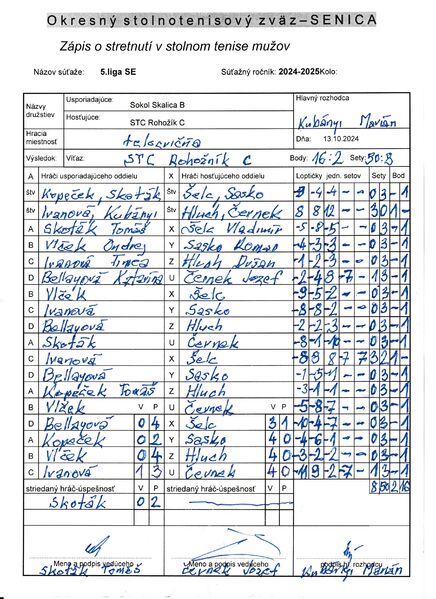 Okresný stolnotenisový zväz – SENICA
Zápis o stretnutí v stolnom tenise mužov
Názov súťaže: 5.liga SE Súťažný ročník: 2024-2025 Kolo:
Názvy družstiev Usporiadajúce: Sokol Skalica B Hlavný rozhodca
Hosťujúce: STC Rohožík C Kubányi Marián
Hracia miestnosť telocvičňa Dňa: 13.10.2024
Výsledok: Víťaz: STC Rohožník C Body: 16:2 Sety: 50:8
A Hráči usporiadajúceho oddielu X Hráči hosťujúceho oddielu Loptičky jedn. setov Sety Bod
štv Kopeček, Skoták štv Šelc, Sasko 0 3 - 1
štv Ivanová, Kubányi štv Hluch, Černek 8 8 12 - - 3 0 1 -
A Skoták Tomáš X Šelc Vladimír -5 -8 -5 - - 0 3 - 1
B Vlček Ondrej Y Sasko Roman -4 -3 -3 - - 0 3 - 1
C Ivanová Timea Z Hluch Dušan -1 -2 -3 - - 0 3 - 1
D Bellayová Katarína U Černek Jozef 1 3 - 1
B Vlček X Šelc -9 -5 -2 - - 0 3 - 1
C Ivanová Y Sasko -8 -8 -2 - - 0 3 - 1
D Bellayová Z Hluch -2 -2 -3 - - 0 3 - 1
A Skoták U Černek -8 -1 -10 - - 0 3 - 1
C Ivanová X Šelc 3 2 1 -
D Bellayová Y Sasko -1 -5 -1 - - 0 3 - 1
A Kopeček Tomáš Z Hluch -3 -1 -1 - - 0 3 - 1
B Vlček V P U Černek V P -5 -8 -7 - - 0 3 - 1
D Bellayová 0 4 X Šelc 3 1 -10 -4 -7 - - 0 3 - 1
A Kopeček 0 2 Y Sasko 4 0 -4 -6 -1 - - 0 3 - 1
B Vlček 0 4 Z Hluch 4 0 -3 -2 -2 - - 0 3 - 1
C Ivanová 1 3 U Černek 4 0 1 3 - 1
striedaný hráč-úspešnosť V P striedaný hráč-úspešnosť V P 8 50 2 16
Skoták 0 2
Meno a podpis vedúceho Meno a podpis vedúceho podpis hl. rozhodcu
Skoták Tomáš Černek Jozef Kubányi Marián